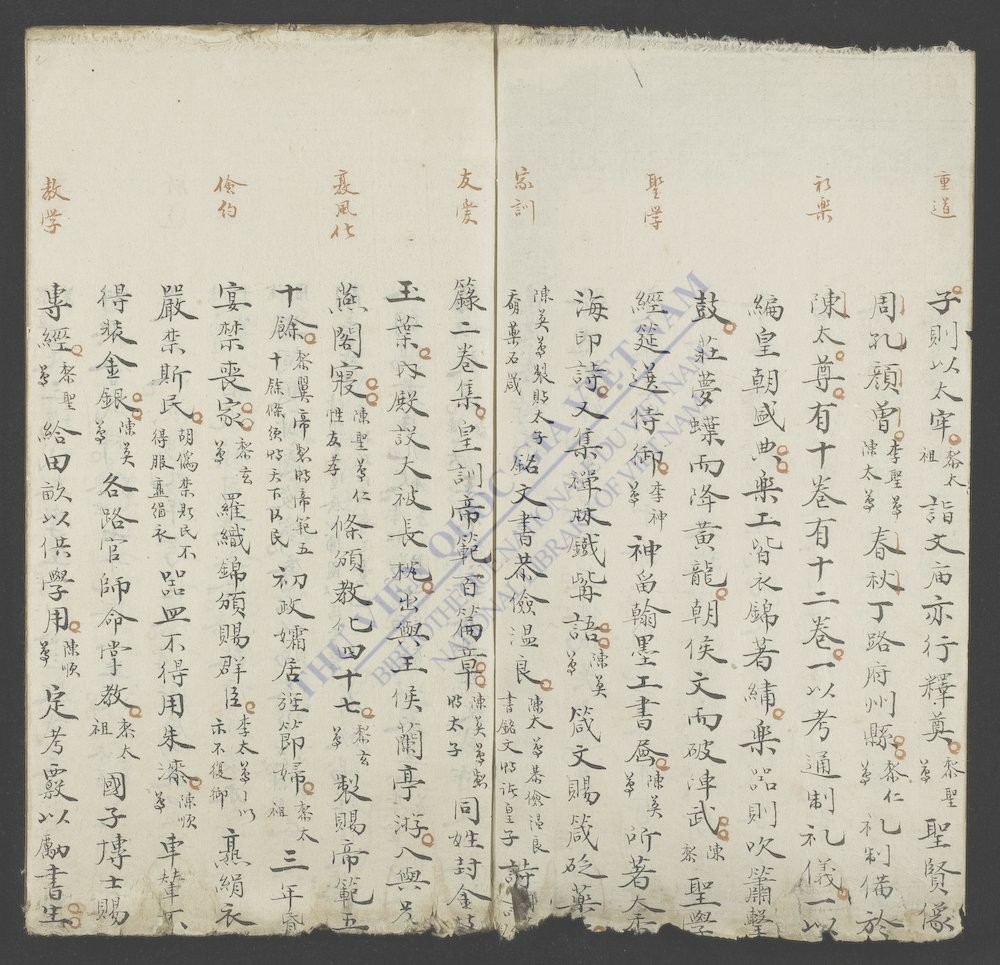 重道
子則以太牢黎太祖詣文庙亦行釋奠黎聖尊聖賢像
周孔顔曾李聖尊陳太尊春秋丁路府州縣黎仁尊礼制備於
礼樂
陳太尊有十卷有十二卷一以考通制礼儀一以
編皇朝盛典樂工皆衣錦著繡樂器則吹簫擊
鼓莊夢蝶而降黃龍朝侯文而破陣武陳黎聖學
聖学
經筵選侍御李神尊神留翰墨工書屬陳英尊所著
海印詩又集禪林鐵觜語陳英尊箴文賜箴砭藥
陳英尊製賜太子銘文書恭儉温良陳太尊恭儉温良書銘文賜諸皇子詩
看藥石箴
家訓
籙二卷集皇訓帝範百篇章陳英尊製賜太子同姓封金
友愛
玉葉内殿設大被長枕出與王侯蘭亭游入與兄
燕閣寢陳聖尊仁性友孝條頒教化四十七黎玄尊製賜帝範五
袤風化
十餘黎翼帝製賜帝範五十餘條頒賜天下臣民初政孀居旌節婦黎太祖三年昏
宴禁喪家黎玄尊羅織錦頒賜群臣李太尊以示不復御熏絹衣
儉約
嚴禁斯民胡僞禁斯民不得服熏絹衣器皿不得用朱漆陳順尊車輦不
得装金銀陳英尊各路官師命掌教黎太祖國子博士賜
專經黎聖尊給田畝以供學用陳順尊定考覈以勵書生
教学
THƯ VIỆN QUỐC GIA VIỆT NAM
BIBLIOTHÈQUE NATIONALE DU VIETNAM
NATIONAL LIBRARY OF VIETNAM